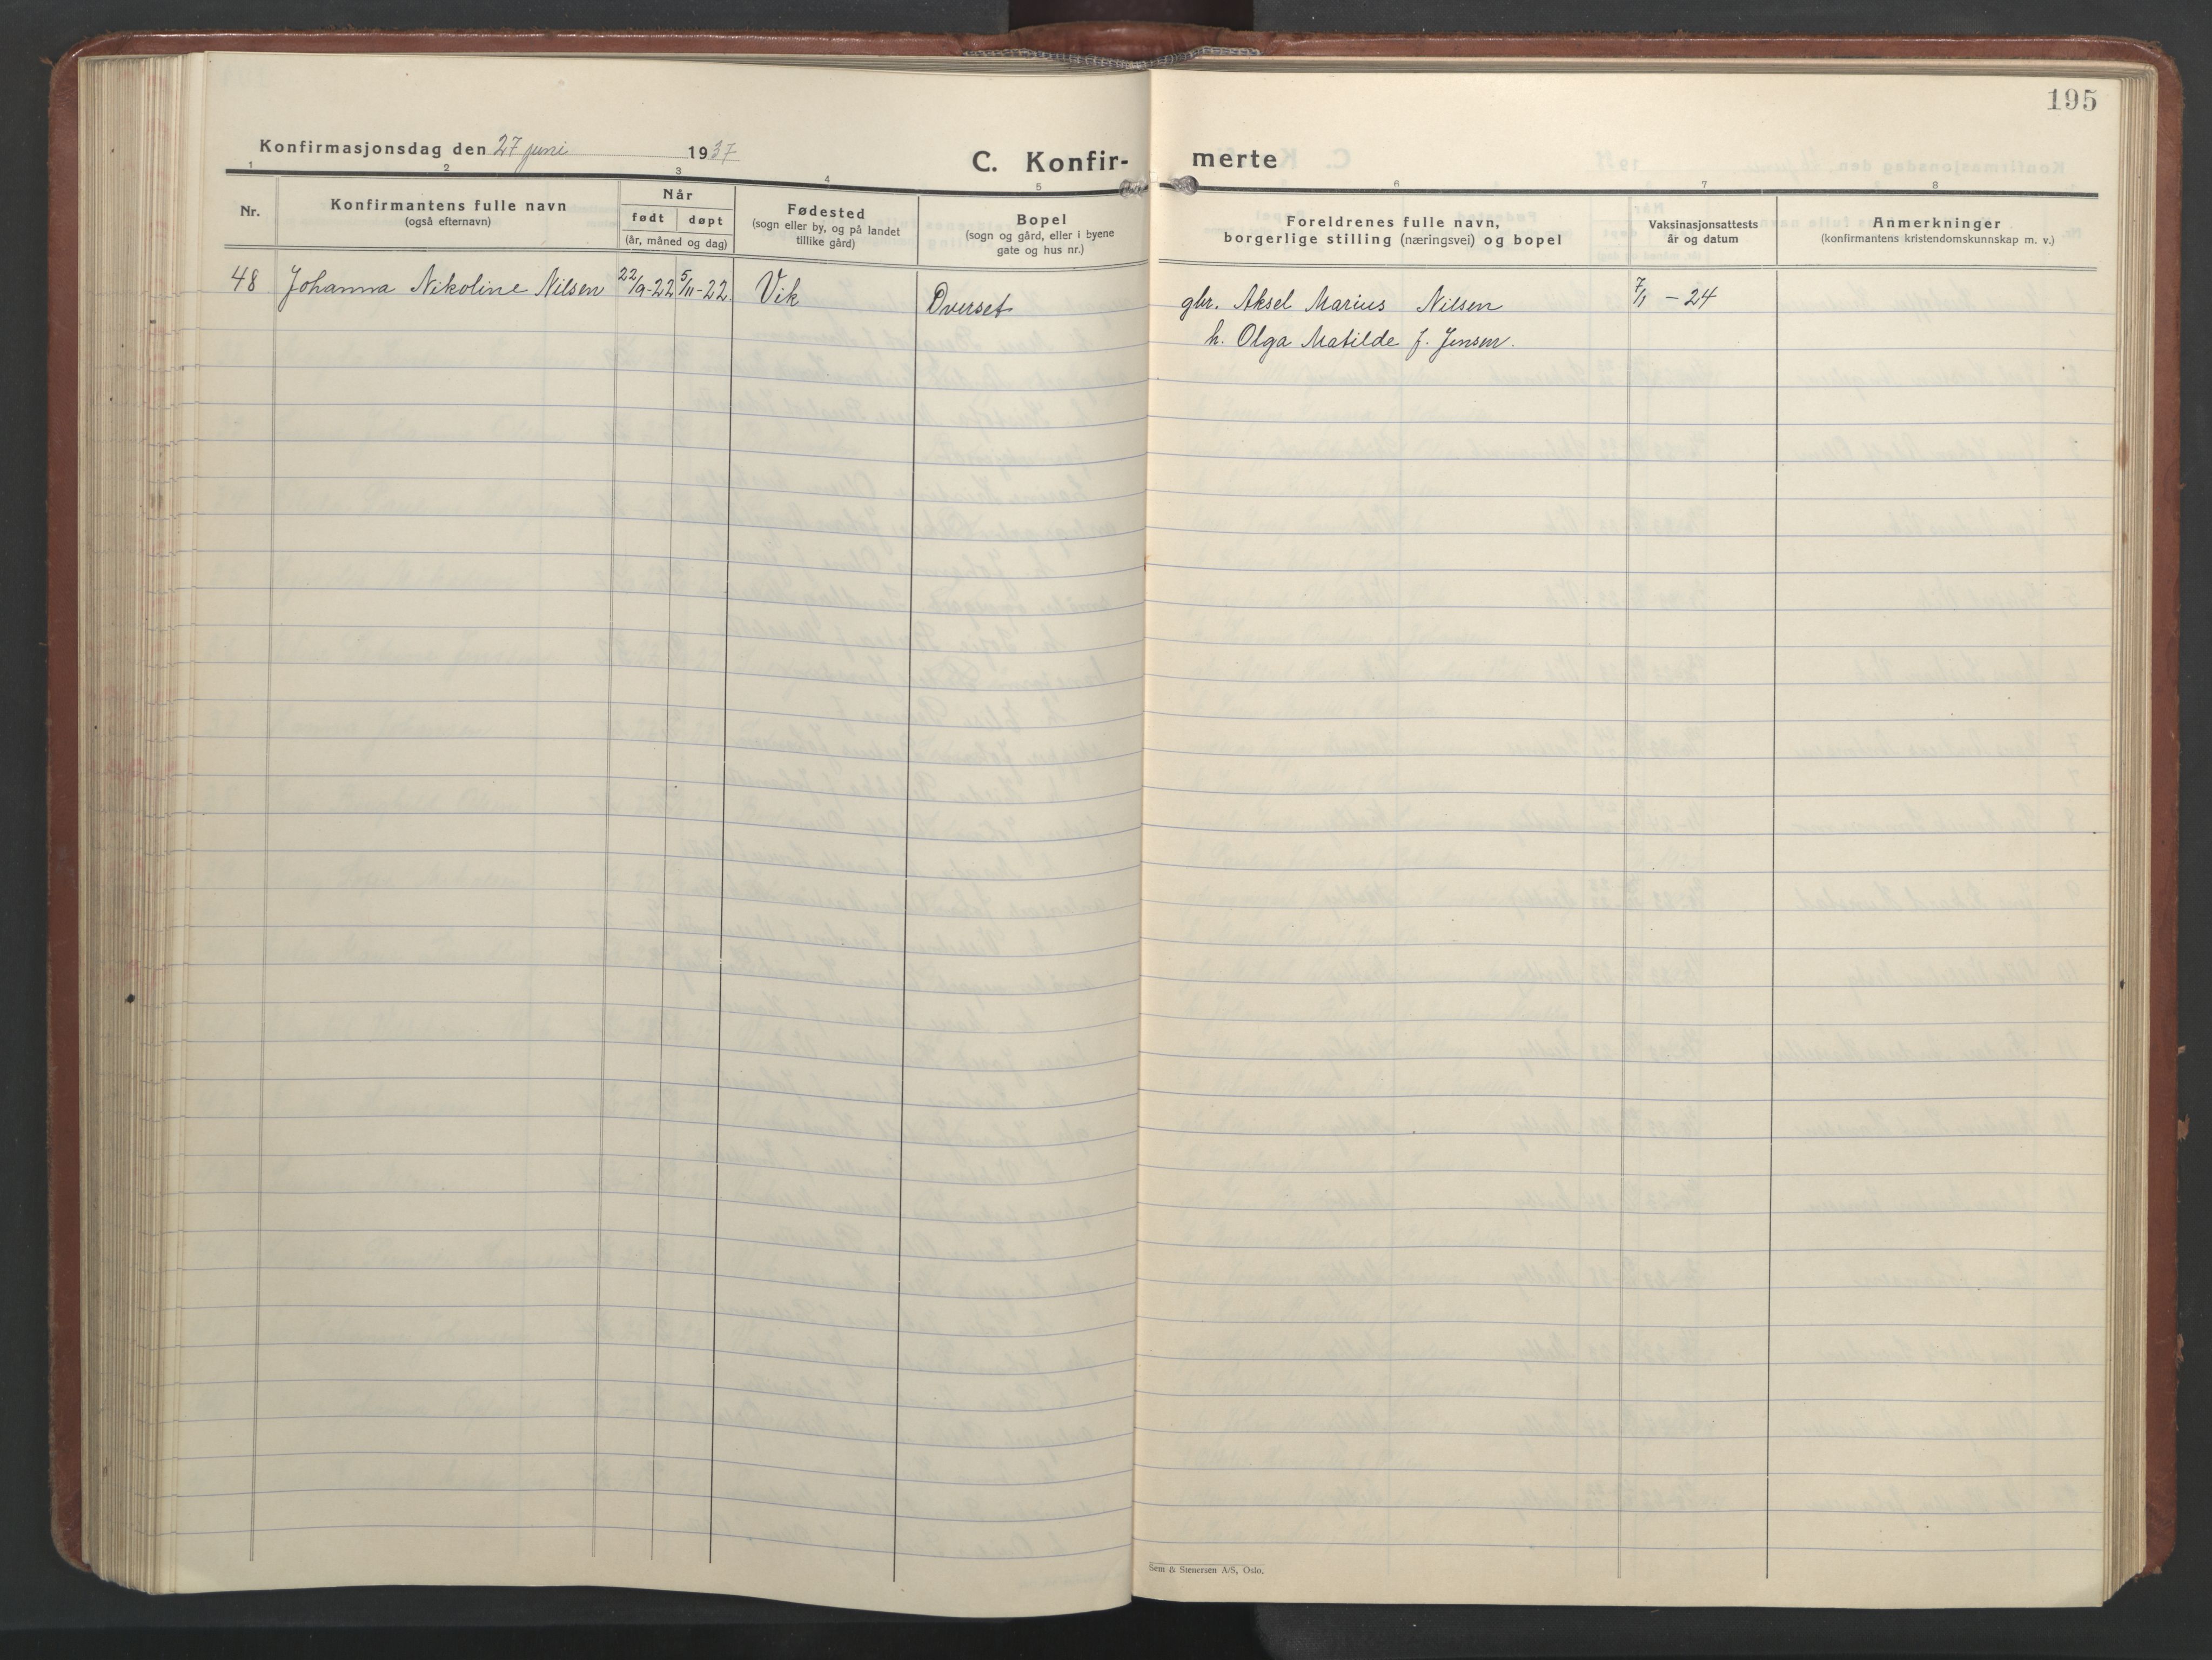 195
Konfirmasjonsdag den 27 juni 1937
C. Konfir- merte
1 2 3 4 5 6 7 8
Nr.
Konfirmantens fulle navn
(også efternavn)
Når
født døpt
(år, måned og dag)
Fødested
(sogn eller by, og på landet
tillike gård)
Bopel
(sogn og gård, eller i byene
gate og hus nr.)
Foreldrenes fulle navn,
borgerlige stilling (næringsvei) og bopel
Vaksinasjonsattests
år og datum
Anmerkninger
(konfirmantens kristendomskunnskap m. v.)
48 Johanna Nikoline Nilsen 22/9-22 5/11-22. Vik Dverset gbr. Aksel Marius Nilsen 7/1 - 24
h. Olga Matilde f. Jensen.
Sem & Stenersen A/S, Oslo.